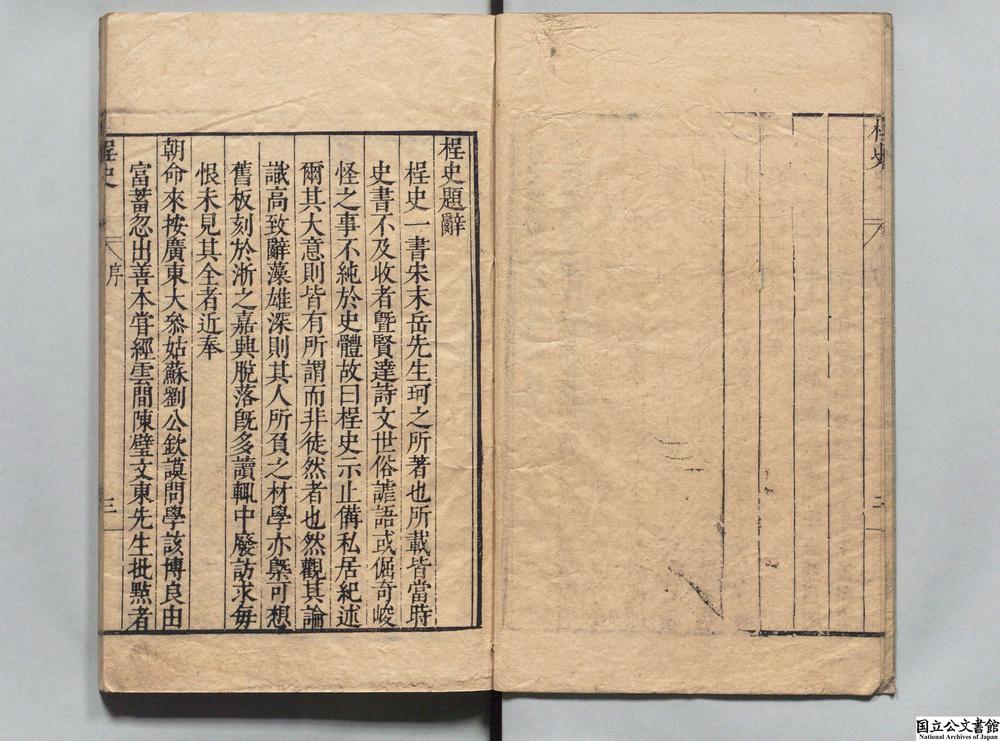 桯史
二
桯史題辭
桯史一書宋末岳先生珂之所著也所載皆當時
史書不及收者曁賢達詩文世俗謔語或倔奇峻
怪之事不純於史體故曰桯史示止備私居紀述
爾其大意則皆有所謂而非徒然者也然觀其論
議高致辭藻雄深則其人所負之材學亦槩可想
舊板刻於浙之嘉興脫落旣多讀輒中廢訪求每
恨未見其全者近奉
朝命來按廣東大叅姑蘇劉公欽謨問學該博良由
富蓄忽出善本嘗經雲間陳璧文東先生批點者
桯史
序
三
国立公文書館
National Archives of Japan